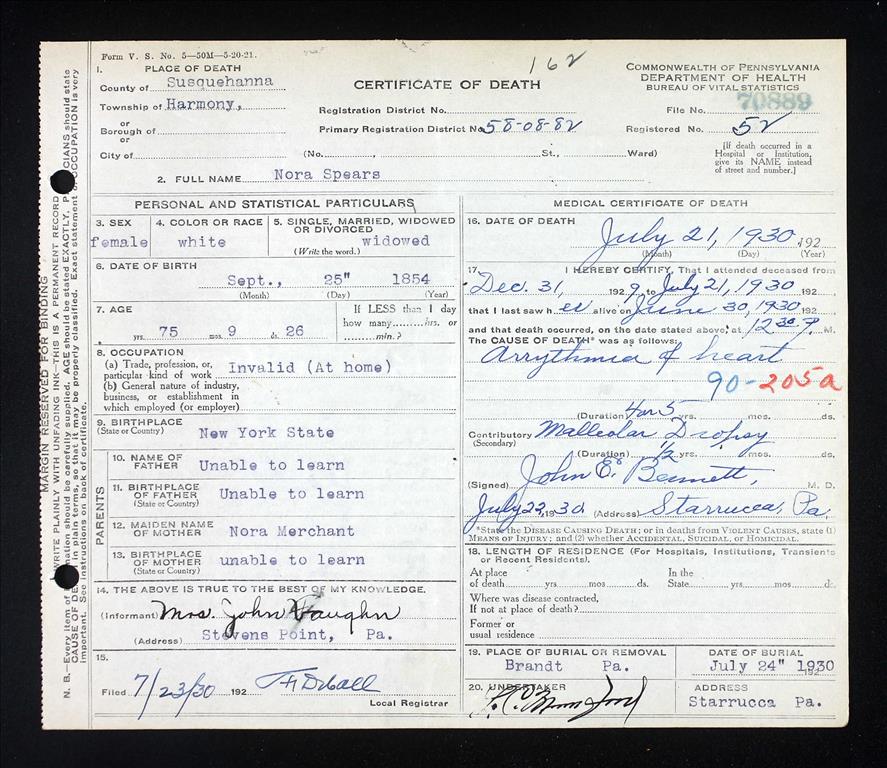 Form V. S. No. 5—50M—5-20-21.
162
1. PLACE OF DEATH
County of Susquehanna
Township of Harmony,
or
Borough of
or
City of
CERTIFICATE OF DEATH
Registration District No.
Primary Registration District No. 58-08-82
(No. , St., Ward)
COMMONWEALTH OF PENNSYLVANIA
DEPARTMENT OF HEALTH
BUREAU OF VITAL STATISTICS
File No. 70889
Registered No. 52
[If death occurred in a
Hospital or Institution,
give its NAME instead
of street and number.]
2. FULL NAME Nora Spears
PERSONAL AND STATISTICAL PARTICULARS
3. SEX
female
4. COLOR OR RACE
white
5. SINGLE, MARRIED, WIDOWED
OR DIVORCED
widowed
(Write the word.)
6. DATE OF BIRTH
Sept., 25" 1854
(Month) (Day) (Year)
7. AGE
75 yrs. 9 26 ds.
If LESS than 1 day
how many hrs. or
min.?
8. OCCUPATION
(a) Trade, profession, or
particular kind of work Invalid (At home)
(b) General nature of industry,
business, or establishment in
which employed (or employer)
9. BIRTHPLACE
(State or Country) New York State
PARENTS
10. NAME OF
FATHER Unable to learn
11. BIRTHPLACE
OF FATHER Unable to learn
(State or Country)
12. MAIDEN NAME
OF MOTHER Nora Merchant
13. BIRTHPLACE
OF MOTHER unable to learn
(State or Country)
14. THE ABOVE IS TRUE TO THE BEST OF MY KNOWLEDGE.
(Informant) Mrs. John Vaughn
(Address) Stevens Point, Pa.
15.
Filed 7/23/30 192
Local Registrar
MEDICAL CERTIFICATE OF DEATH
16. DATE OF DEATH
July 21, 1930 192
(Month) (Day) (Year)
17. I HEREBY CERTIFY, That I attended deceased from
Dec. 31, 1929, to July 21, 1930 192
that I last saw her alive on June 30, 1930 192
and that death occurred, on the date stated above, at 12 30 P. M.
The CAUSE OF DEATH* was as follows:
Arrythmia of heart
90-205a
(Duration) 4 or 5 yrs. mos. ds.
Contributory Malleolar Dropsy
(Secondary)
(Duration) 1/2 yrs. mos. ds.
(Signed) John E. Bennett, M. D.
July 22, 1930. (Address) Starrucca, Pa
*State the DISEASE CAUSING DEATH; or in deaths from VIOLENT CAUSES, state (1)
MEANS OF INJURY; and (2) whether ACCIDENTAL, SUICIDAL, OR HOMICIDAL.
18. LENGTH OF RESIDENCE (For Hospitals, Institutions, Transients
or Recent Residents).
At place
of death yrs. mos. ds.
In the
State yrs. mos. ds.
Where was disease contracted,
If not at place of death?
Former or
usual residence
19. PLACE OF BURIAL OR REMOVAL
Brandt Pa.
DATE OF BURIAL
July 24" 1930
192
20. UNDERTAKER
ADDRESS
Starrucca Pa.
MARGIN RESERVED FOR BINDING
WRITE PLAINLY WITH UNFADING INK—THIS IS A PERMANENT RECORD
N. B.—Every item of information should be carefully supplied. AGE should be stated EXACTLY. PHYSICIANS should state
CAUSE OF DEATH in plain terms, so that it may be properly classified. Exact statement of OCCUPATION is very
important. See instructions on back of certificate.